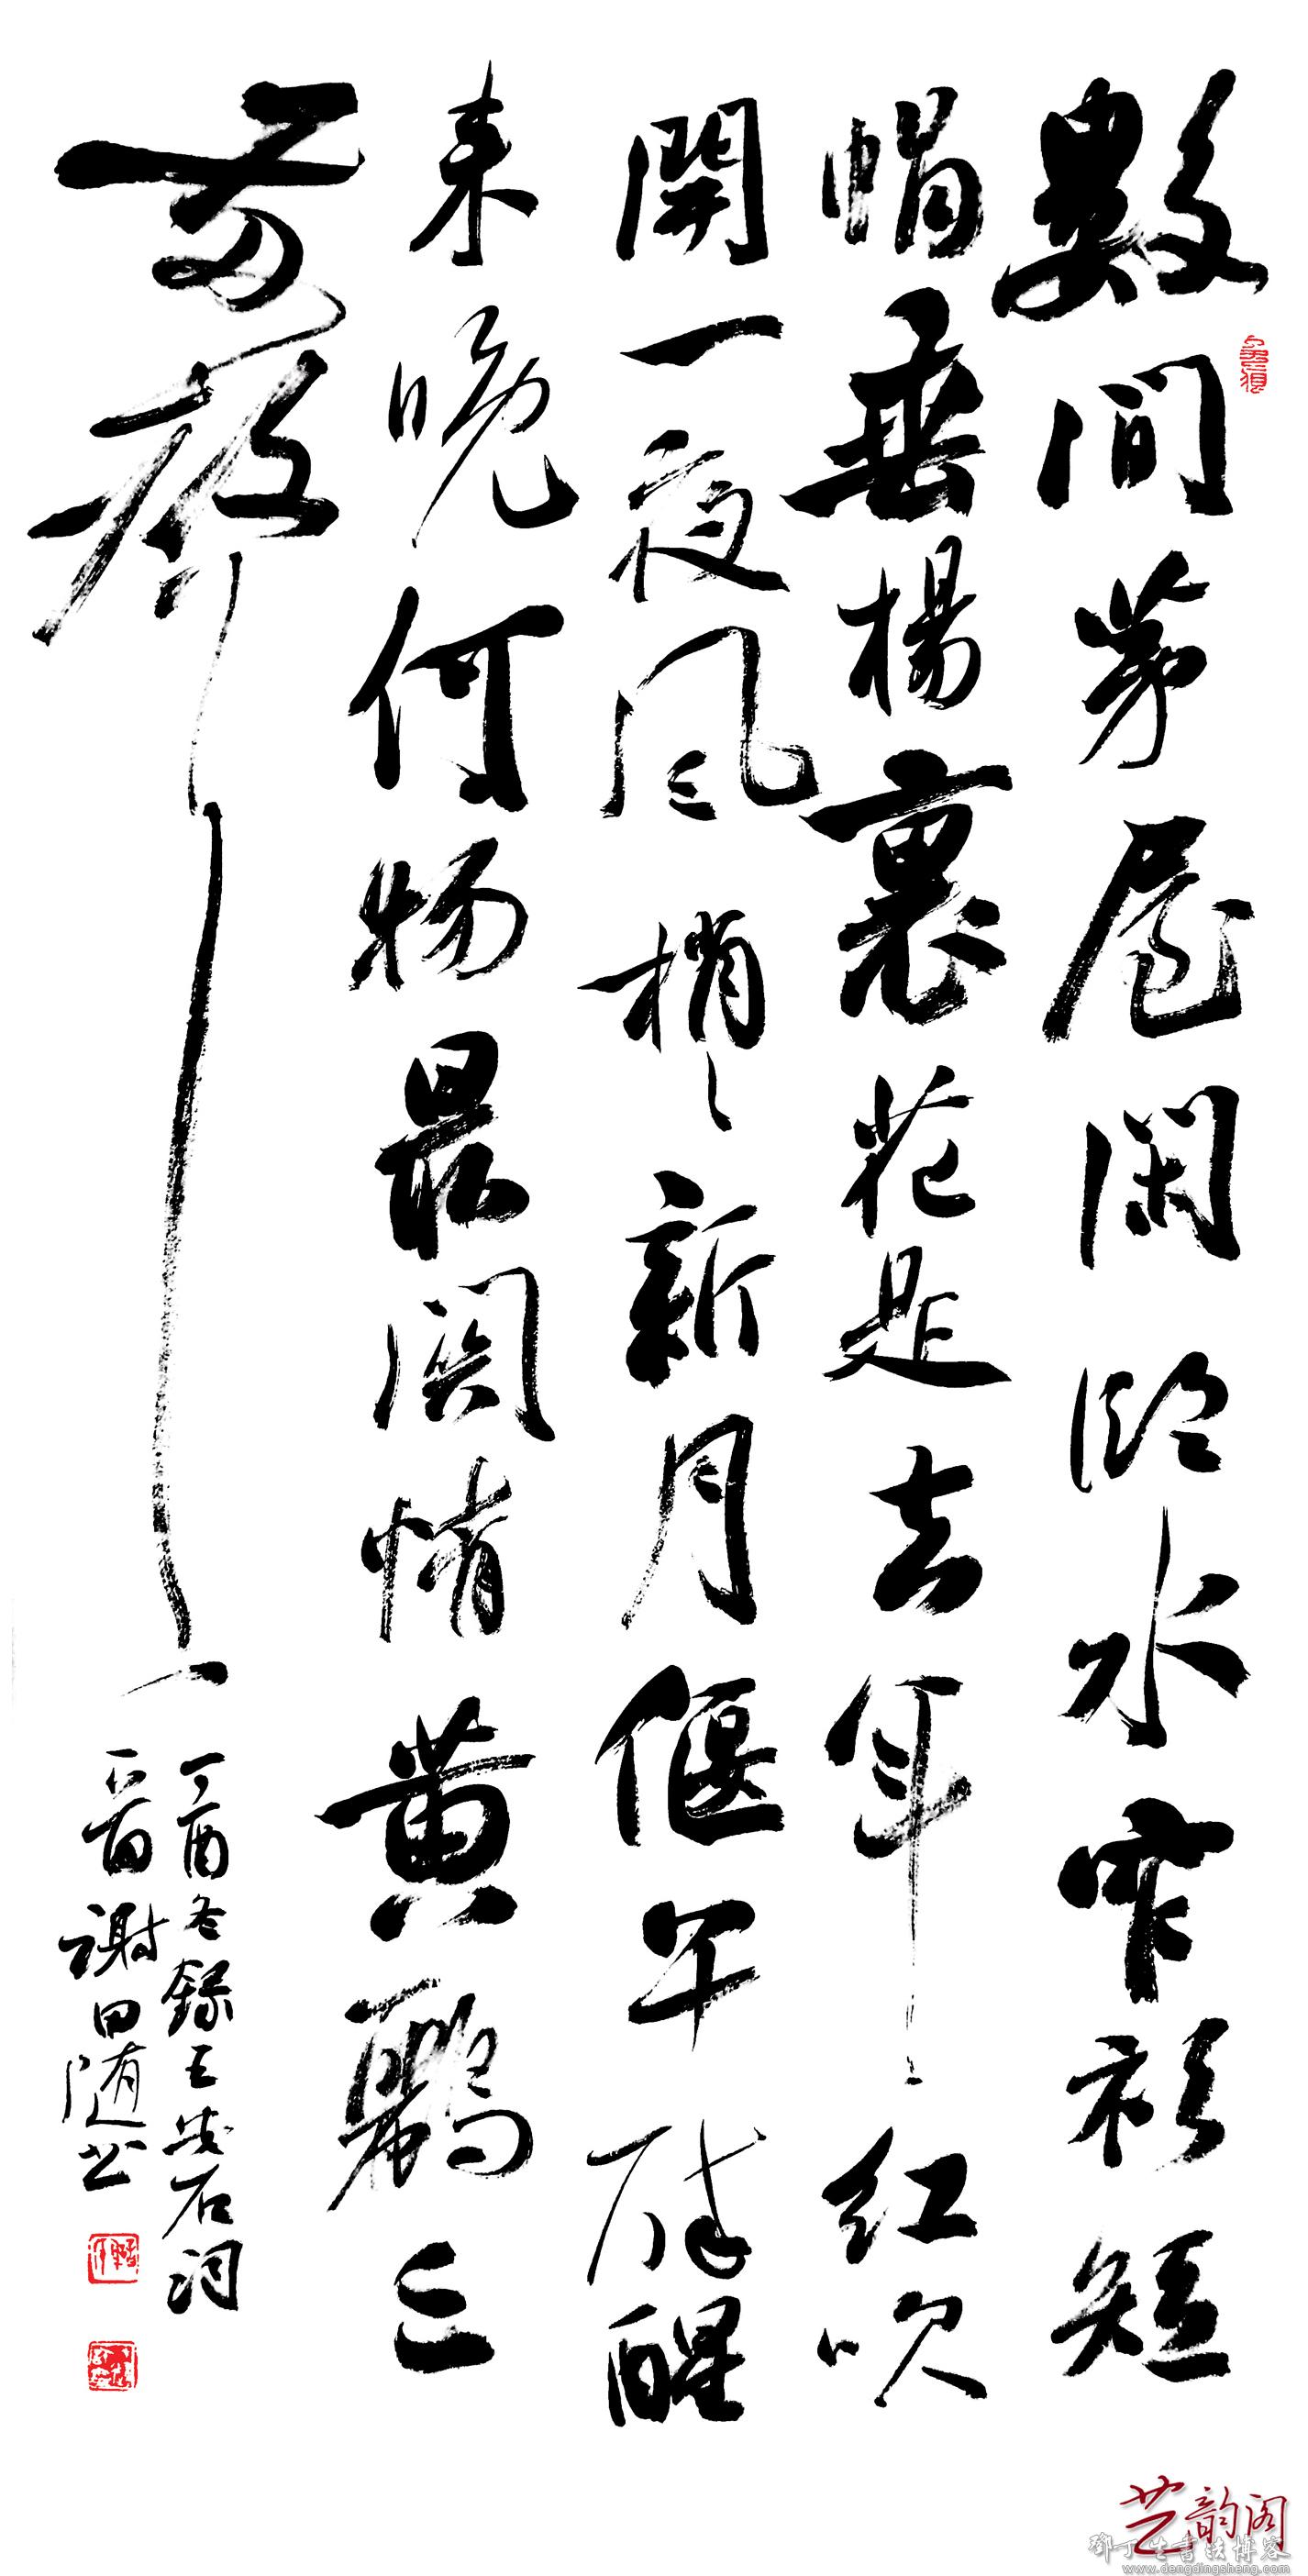 數間茅屋閑臨水窄衫短
帽垂楊裏花是去年紅吹
開一夜风梢〻新月偃午醉醒
来晚何物最関情黄鸝三
两聲
丁酉冬錄王安石词
謝田随书
艺韵阁
鄧丁生書法博客
www.dengdingsheng.com